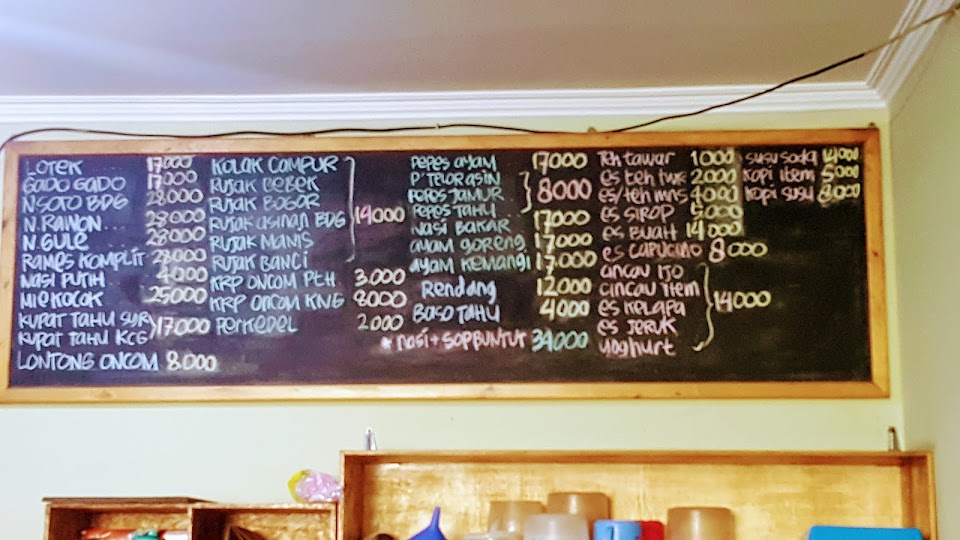 LOTEK 17000
GADO GADO 17000
N.SOTO BDG 28000
N.RAWON 28000
N.GULE 28000
RAMES KOMPLIT 28000
NASI PUTIH 4000
MIE KOCOK 25000
KUPAT TAHU SYR
KUPAT TAHU KCG 17.000
LONTONG ONCOM 8.000
KOLAK CAMPUR
RUJAK BEBEK
RUJAK BOGOR
RUJAK ASINAN BDG 14000
RUJAK MANIS
RUJAK BANCI
KRP ONCOM PTH 3.000
KRP ONCOM KNG 8000
PERKEDEL 2000
PEPES AYAM 17000
P'TELOR ASIN
PEPES JAMUR 8000
PEPES TAHU
NASI BAKAR 17000
AYAM GORENG 17000
AYAM KEMANGI 17.000
RenDang 12000
BASO TAHU 4000
*nasi + SOP BUNTUT 34000
Teh tawar 1000
es teh twr 2000
es/teh mns 4000
es SIROP 5000
es BUAH 14000
es CAPUCINO 8000
CINCAU IJO
CINCAU ITEM
es KELAPA 14000
es JERUK
yoghurt
susu soda 14000
KOPI ITEM 5000
KOPI SUSU 8.000